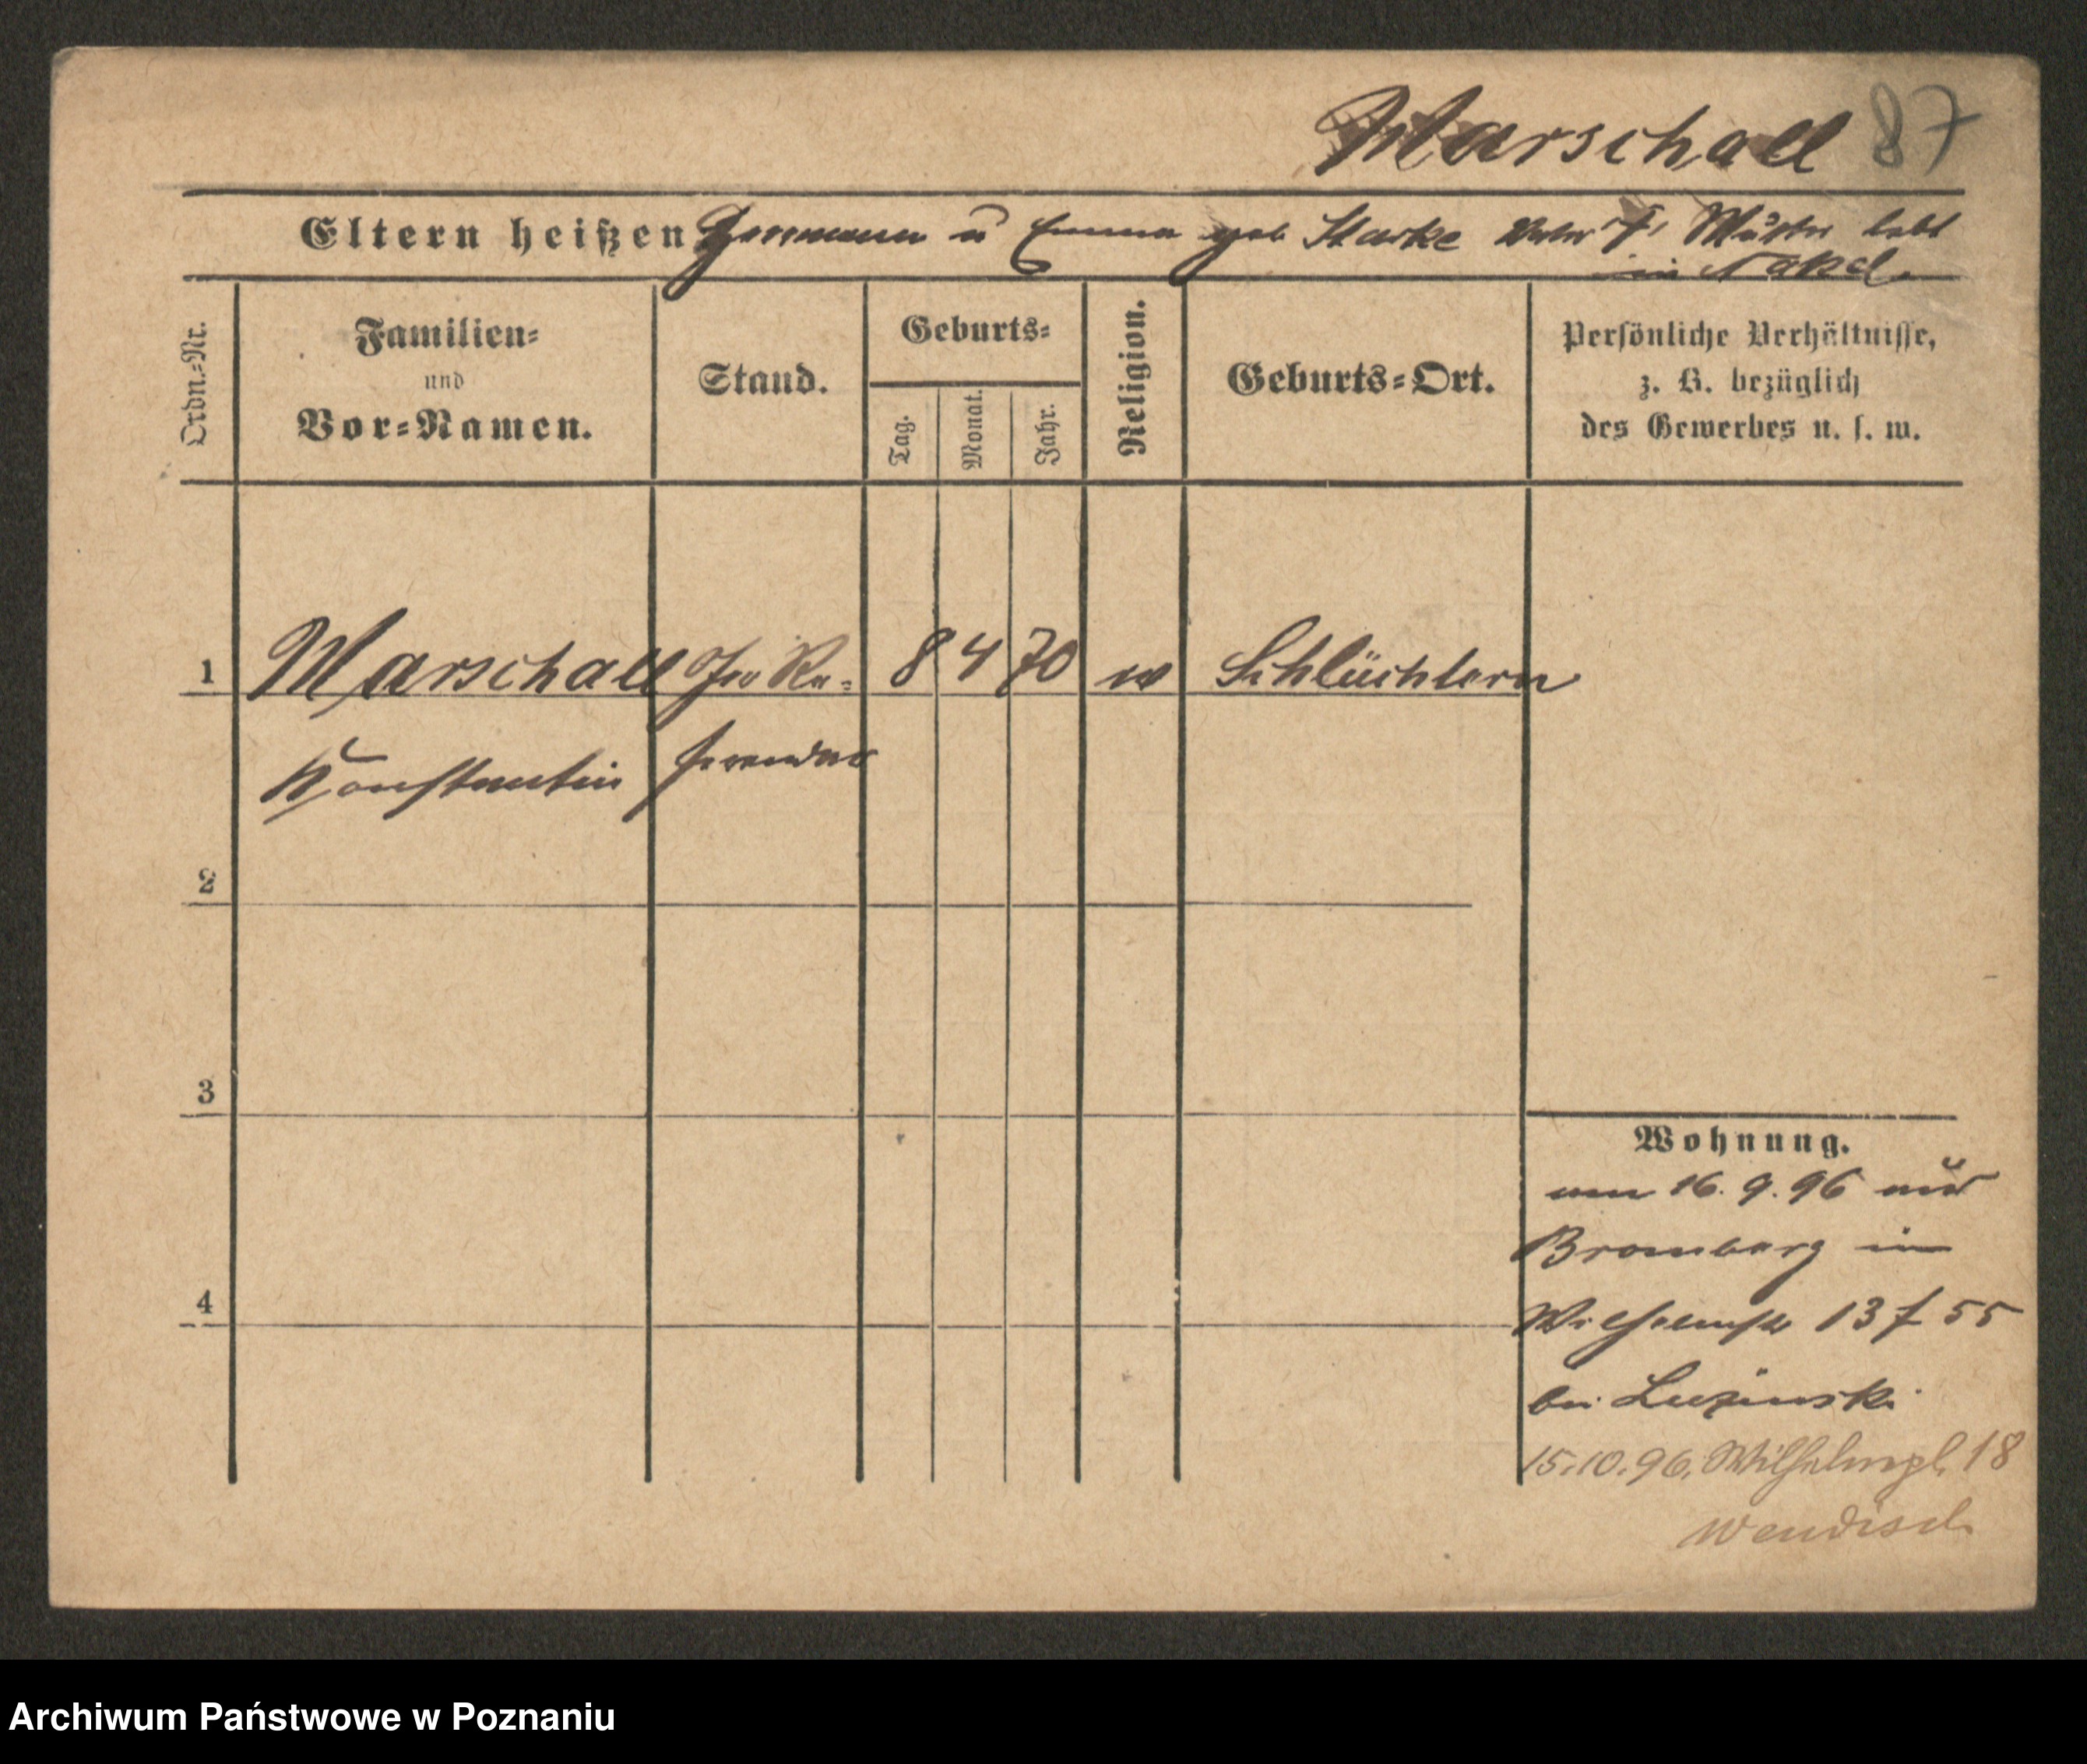 Marschall 87
Eltern heißen Hermann u Emma geb Starke Vater †, Mutter lebt
in Nakel.
Ordn.-Nr.
Familien-
und
Vor-Namen.
Stand.
Geburts-
Tag.
Monat.
Jahr.
Religion.
Geburts-Ort.
Persönliche Verhältnisse,
z. B. bezüglich
des Gewerbes u. s. w.
1 Marschall Re- 8 4 70 Schlüchtern
Konstantin ferendar
2
3
4
Wohnung.
am 16. 9. 96 aus
Bromberg in
Wilhelmstr 13 f 55
bei
15.10.96. Wilhelmspl. 18
Wendisch